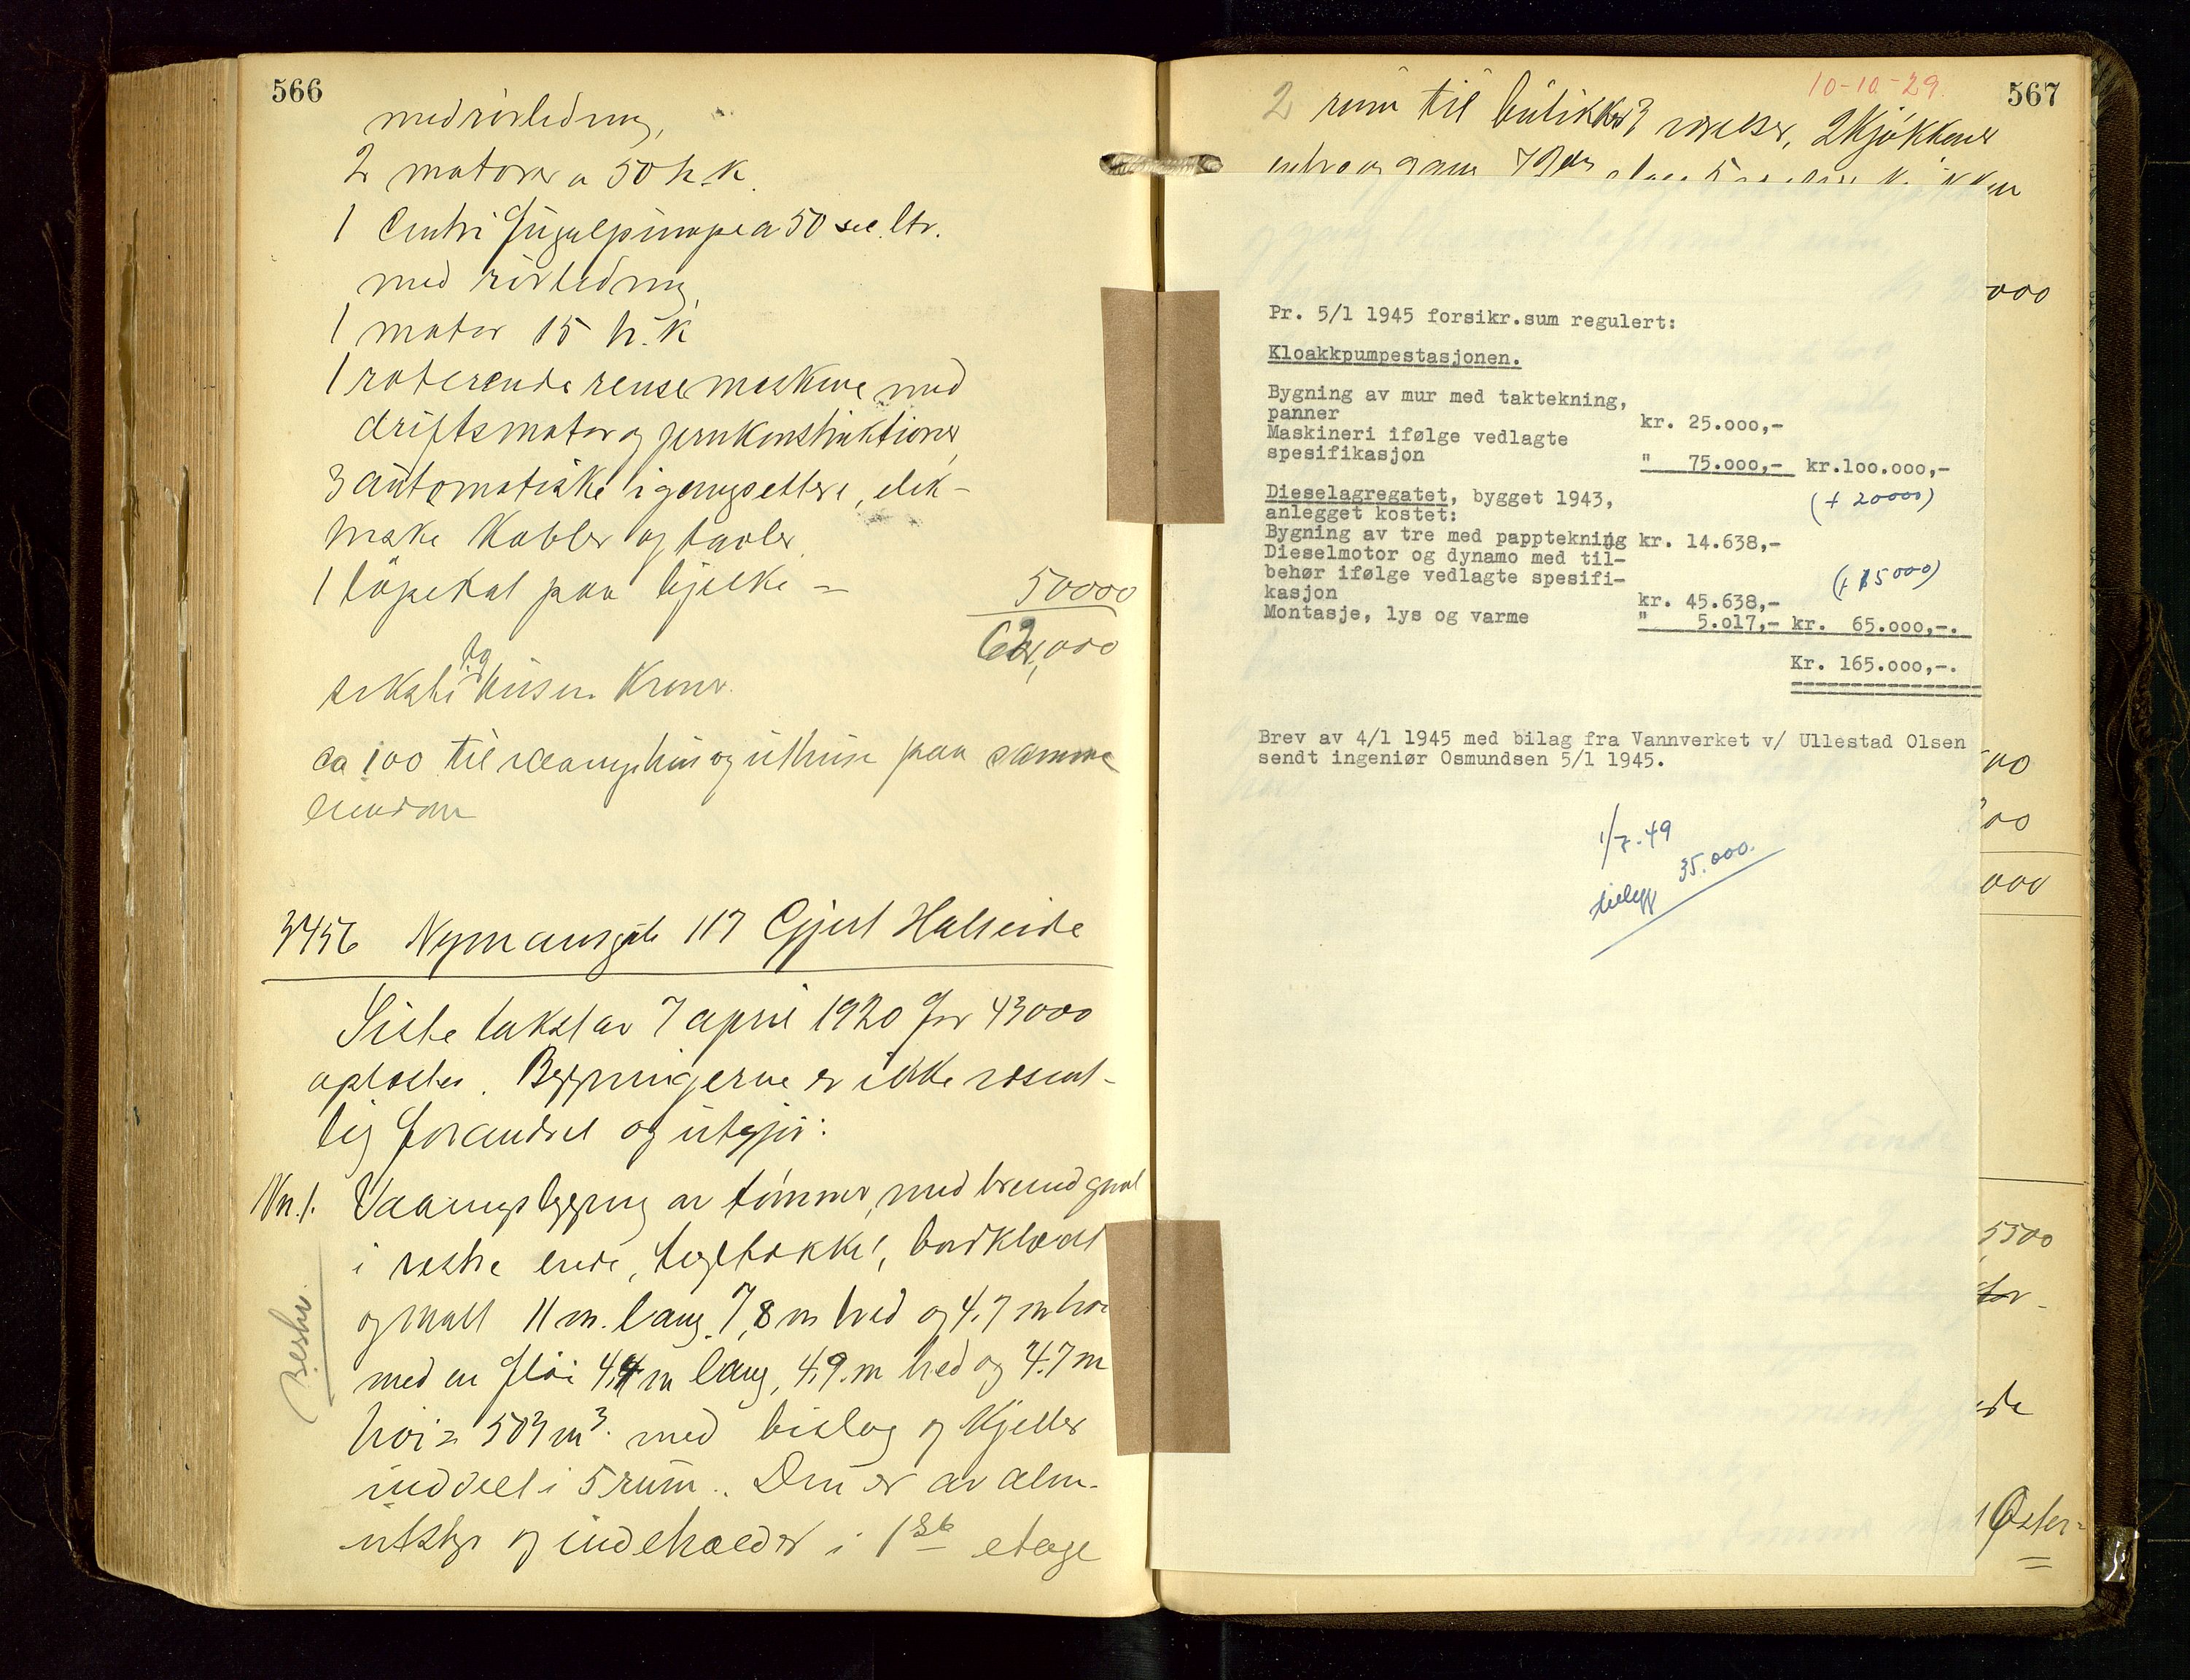 566
med rörledning,
2 motorer a 50 h.k.
1 Centrifugalpumpe a 50 sec. ltr.
med rörledning,
1 motor 15 h.k
1 roterende rensemaskine med
driftsmotor og jernkonstruktioner,
3 automatiske igangsettere, elek-
kabler og tavler.
1 löpekat paa bjelke = 50000
62,000
og
Kroner.
ca 100 til vaanighus og uthus paa samme
eiendom
3456 Nymansgate 117 Gjert Halseide
Siste takst av 7 april 1920 for 43000
oplöstes. Bygningerne er ikke vesent-
lig forandret og utgjör:
No. 1. Vaaningsbygning av tömmer, med brandgavl
i vestre ende, tegltækket, bordklædt
og malt 11 m. lang, 7,8 m bred og 4,7 m höi
med en flöi 4,4 m lang, 4,9 m bred og 4.7 m
Beskr.
höi = 503 m³. med bislag og kjelder
inddelt i 5 rum. Den er av alm.
utstyr og indeholder i 1ste etage
10-10-29
567
2 rum til butikker 3 værelser, 2 kjökkener
entre og gang
Pr. 5/1 1945 forsikr.sum regulert:
Kloakkpumpestasjonen.
Bygning av mur med taktekning,
panner kr. 25.000,-
Maskineri ifølge vedlagte
spesifikasjon " 75.000,- kr.100.000,-
Dieselagregatet, bygget 1943, (+ 20000)
anlegget kostet:
Bygning av tre med papptekning kr. 14.638,-
Dieselmotor og dynamo med til-
behør ifølge vedlagte spesifi- (+ 15000)
kasjon kr. 45.638,-
Montasje, lys og varme " 5.017,- kr. 65.000,-.
Kr. 165.000,-.
Brev av 4/1 1945 med bilag fra Vannverket v/ Ullestad Olsen
sendt ingeniør Osmundsen 5/1 1945.
1/7-49
tillegg 35.000.
000
00
00
000
5500
de
Öster=